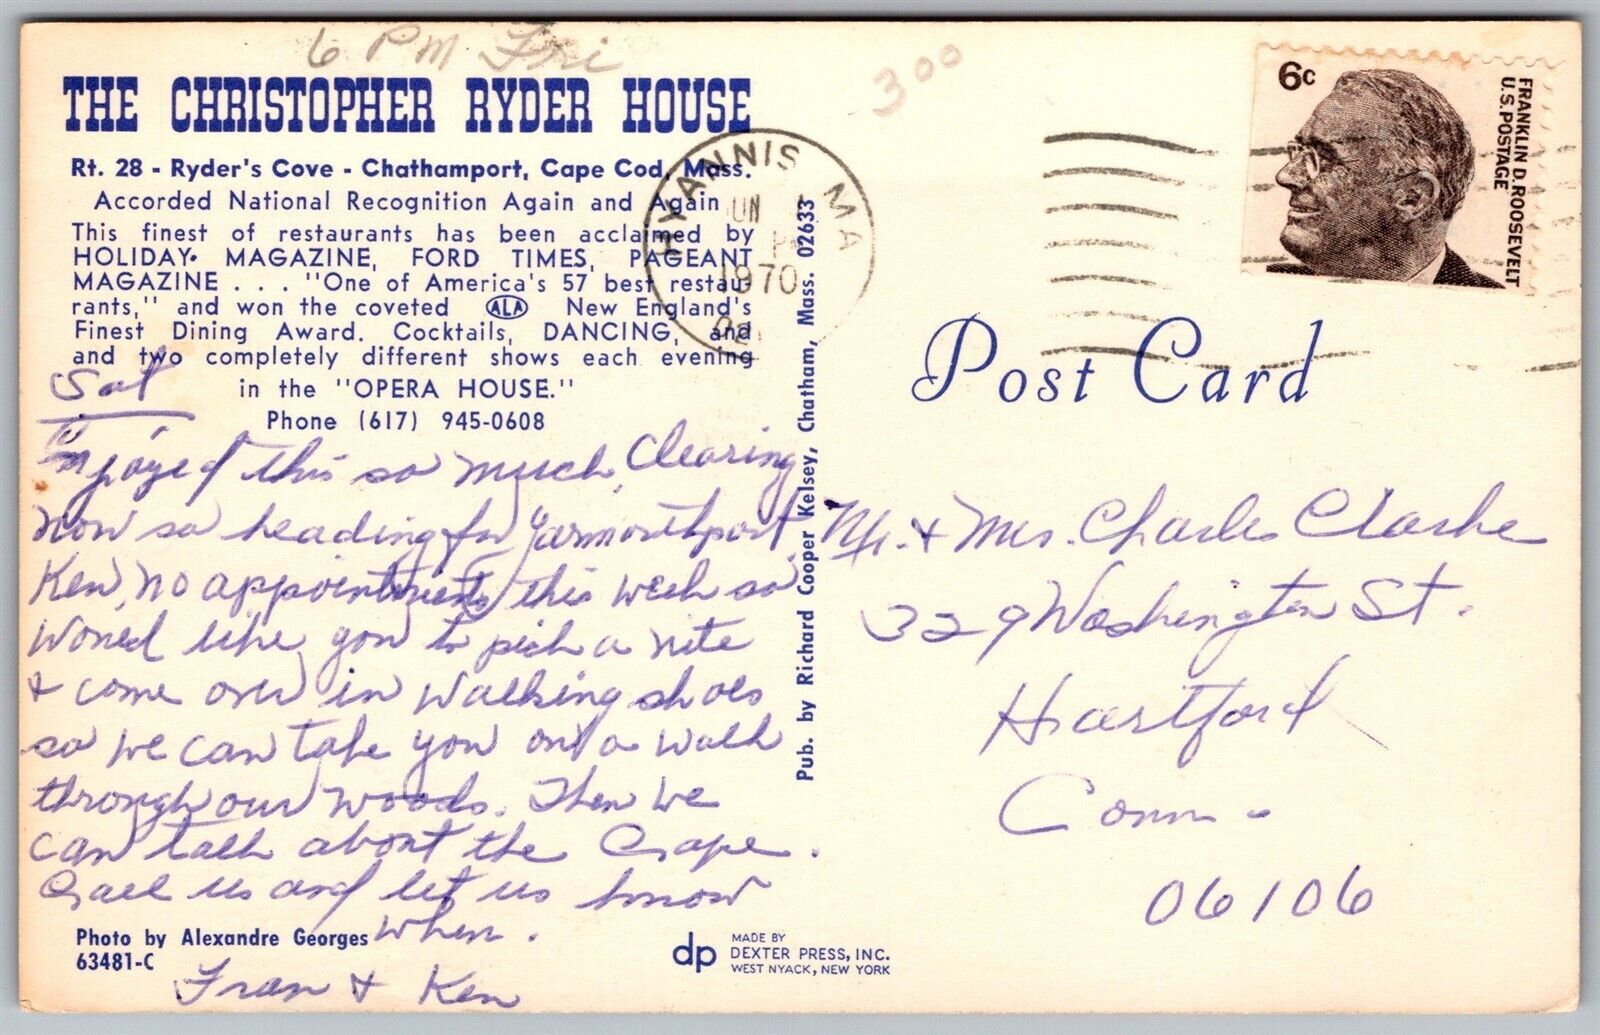 6 PM Fri
3 00
THE CHRISTOPHER RYDER HOUSE
Rt. 28 - Ryder's Cove - Chathamport, Cape Cod, Mass.
Accorded National Recognition Again and Again
This finest of restaurants has been acclaimed by
HOLIDAY MAGAZINE, FORD TIMES, PAGEANT
MAGAZINE . . . "One of America's 57 best restau-
rants," and won the coveted ALA New England's
Finest Dining Award. Cocktails, DANCING, and
and two completely different shows each evening
in the "OPERA HOUSE."
Phone (617) 945-0608
Sat
Enjoyed this so much, Clearing
now so heading for Yarmouthport.
Ken, no appointments this week so
Would like you to pick a nite
& come over in walking shoes
so we can take you on a walk
through our woods. Then we
can talk about the Cape.
Call us and let us know
when.
Fran & Ken
Photo by Alexandre Georges
63481-C
dp MADE BY
DEXTER PRESS, INC.
WEST NYACK, NEW YORK
Pub. by Richard Cooper Kelsey, Chatham, Mass. 02633
HYANNIS MA
1970
6c
FRANKLIN D. ROOSEVELT
U.S. POSTAGE
Post Card
Mr. & Mrs. Charles Clarke
329 Washington St.
Hartford
Conn.
06106